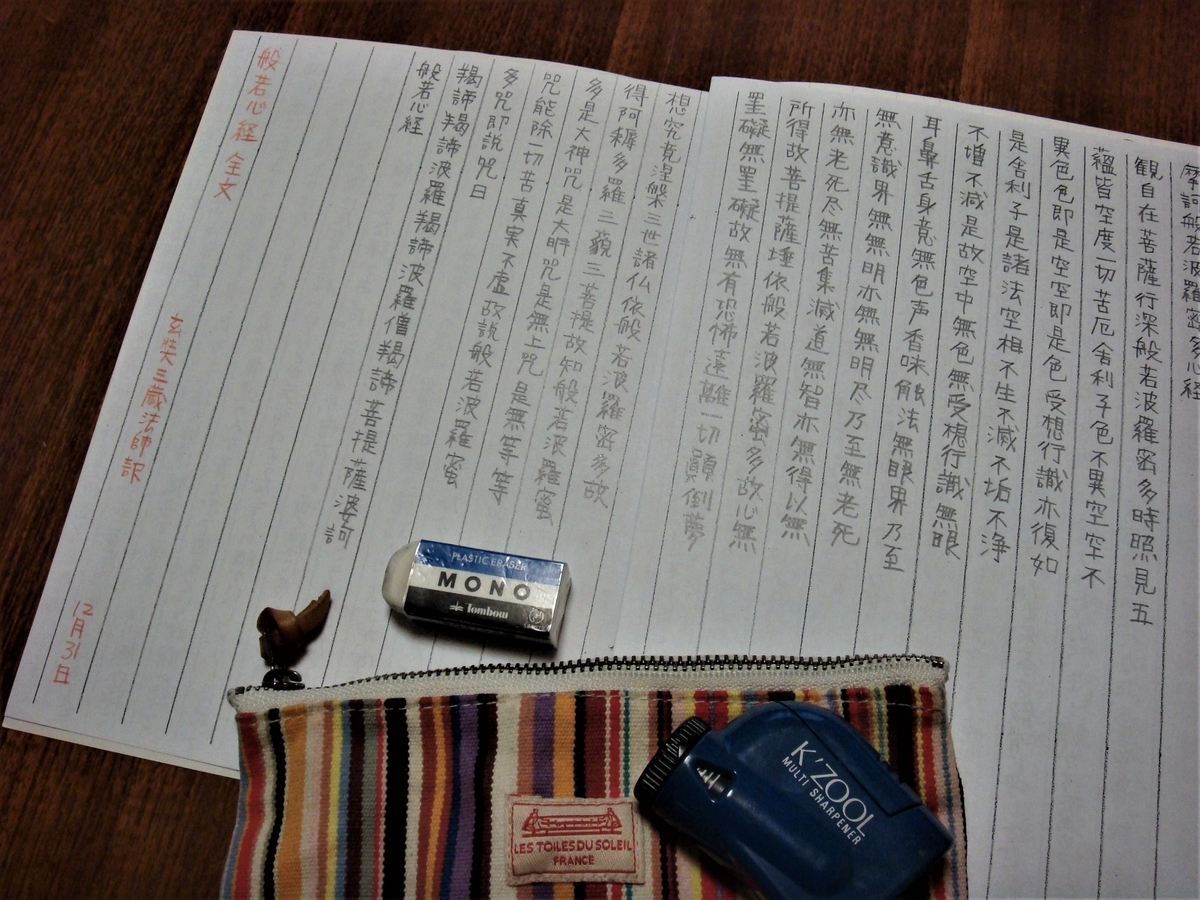 摩訶般若波羅蜜多心経
観自在菩薩行深般若波羅密多時照見五
蘊皆空度一切苦厄舎利子色不異空空不
異色色即是空空即是色受想行識亦復如
是舎利子是諸法空相不生不滅不垢不浄
不増不減是故空中無色無受想行識無眼
耳鼻舌身意無色声香味触法無眼界乃至
無意識界無無明亦無無明尽乃至無老死
亦無老死尽無苦集滅道無智亦無得以無
所得故菩提薩埵依般若波羅密多故心無
罣礙無罣礙故無有恐怖遠離一切顛倒夢
想究竟涅槃三世諸仏依般若波羅密多故
得阿耨多羅三藐三菩提故知般若波羅蜜
多是大神咒是大明咒是無上咒是無等等
咒能除一切苦真実不虚故説般若波羅蜜
多咒即説咒曰
羯諦羯諦波羅羯諦波羅僧羯諦菩提薩婆訶
般若心経
般若心経 全文
玄奘三蔵法師訳
12月31日
PLASTIC ERASER
MONO
Tombow
K'ZOOL
MULTI SHARPENER
LES TOILES DU SOLEIL
FRANCE